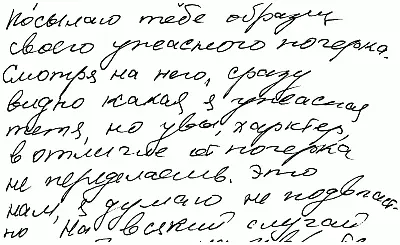 Посылаю тебе образец
своего ужасного почерка.
Смотря на него, сразу
видно какая я ужасная
тетя, но увы, характер,
в отличие от почерка
не переделаешь. Это
нам, я думаю не подвласт-
но На всякий случай